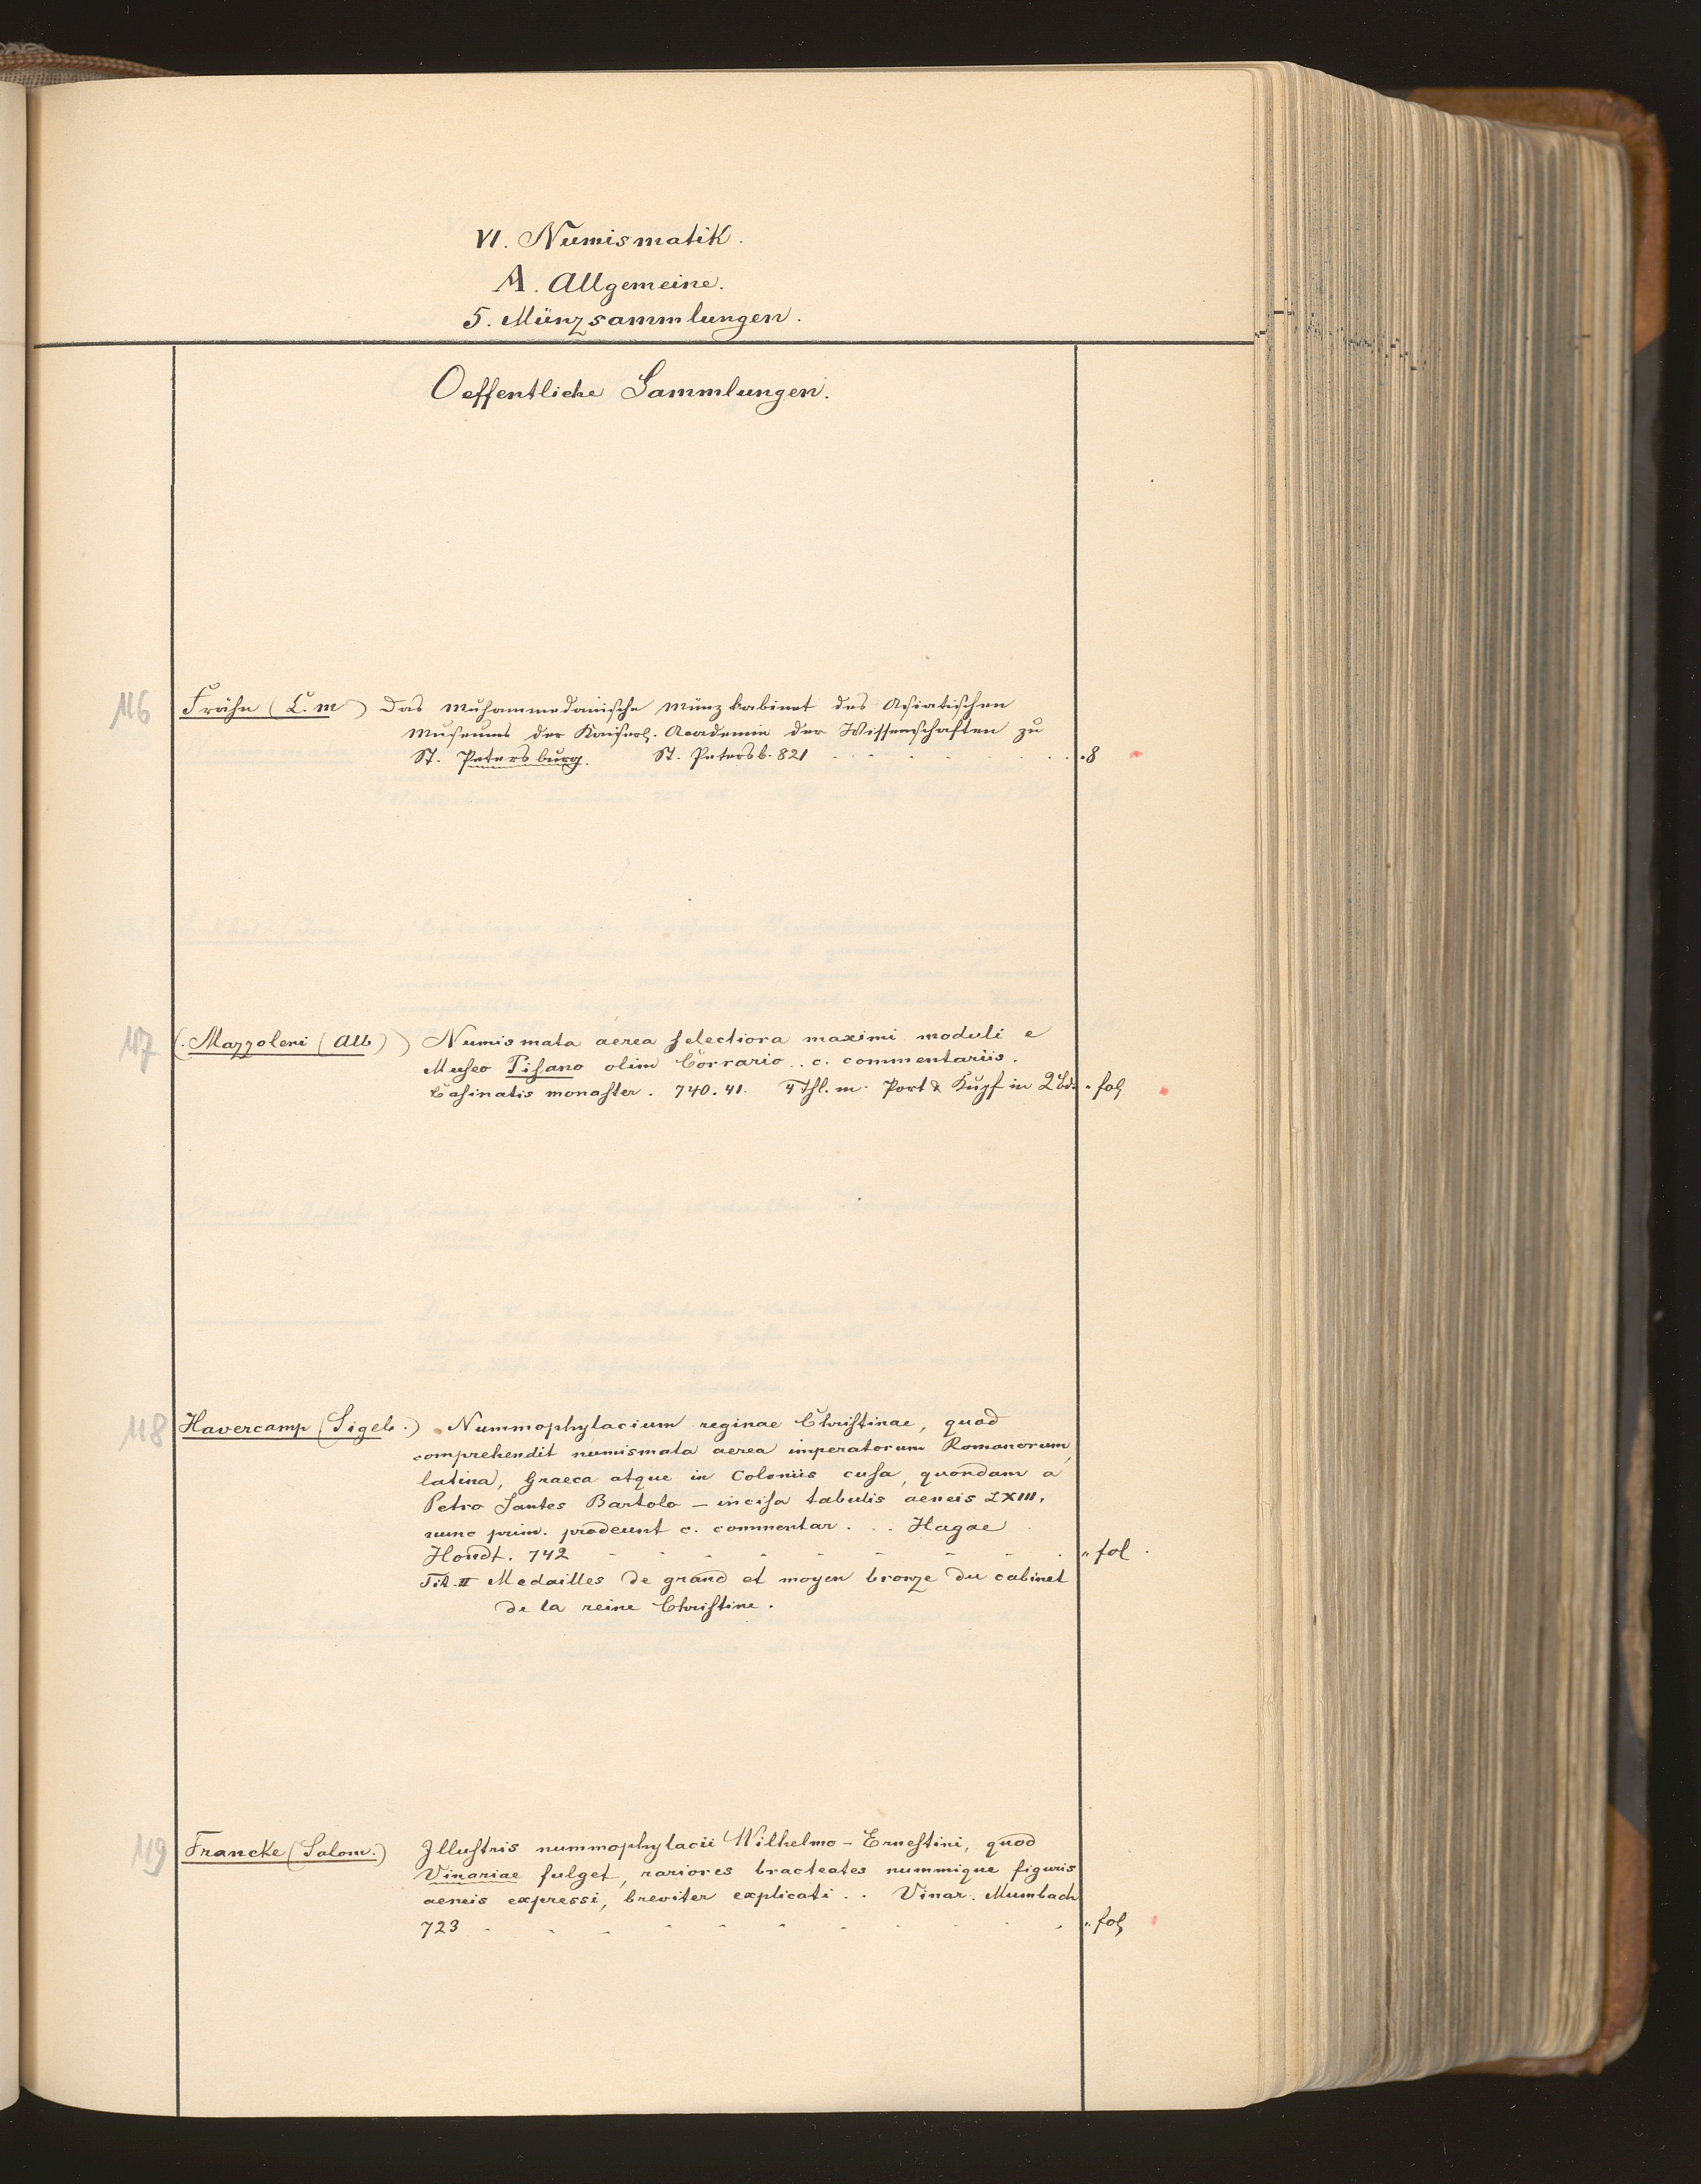 VI. Numismatik.
A. Allgemeine.
5. Münzsammlungen.
Oeffentliche Sammlungen.
116 Frähn (C. M ) Das Muhammedanische Münzkabinet des Asiatischen
Museums der Kaiserl. Academie der Wissenschaften zu
St. Petersburg. St. Petersb. 821 . . . . . . " 8
117 (. Mazzoleni (Alb )) Numismata aerea selectiora maximi moduli e
Museo Pisano olim Corrario .. c. commentariis.
Casinatis monaster. 740. 41. 4 Thl. m. Port & Kupf in 2 Bd. " fol
118 Havercamp (Sigeb.) Nummophylacium reginae Christinae, quod
comprehendit numismata aerea imperatorum Romanorum,
latina, Graeca atque in Coloniis cusa, quondam a
Petro Santes Bartolo – incisa tabulis aeneis LXIII,
nunc prim. prodeunt c. commentar. . . Hagae
Hondt. 742 - - - - - - - - - " fol .
Tit. II Medailles de grand et moyen bronze du cabinet
de la reine Christine.
119 Francke (Salom.) Illustris nummophylacii Wilhelmo - Ernestini, quod
Vinariae fulget, rariores bracteates nummique figuris
aeneis expressi, breviter explicati . . Vinar. Mumbach
723 - - - - - - - - - - - " fol